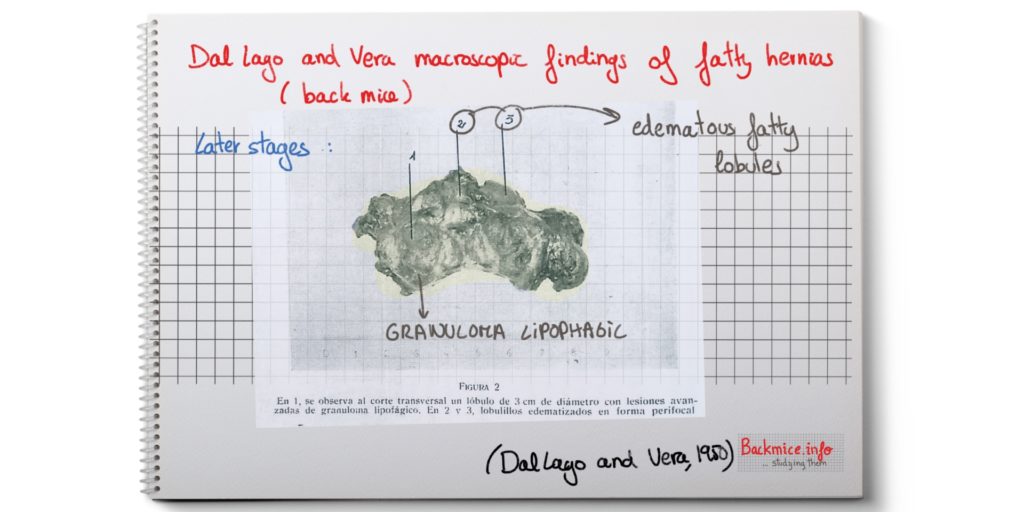 Dal Lago and Vera macroscopic findings of fatty hernias
(back mice)
Later stages :
1
2
3
edematous fatty
lobules
GRANULOMA LIPOPHAGIC
FIGURA 2
En 1, se observa al corte transversal un lóbulo de 3 cm de diámetro con lesiones avan-
zadas de granuloma lipofágico. En 2 y 3, lobulillos edematizados en forma perifocal
(Dal Lago and Vera, 1950)
Backmice.info
... studying them